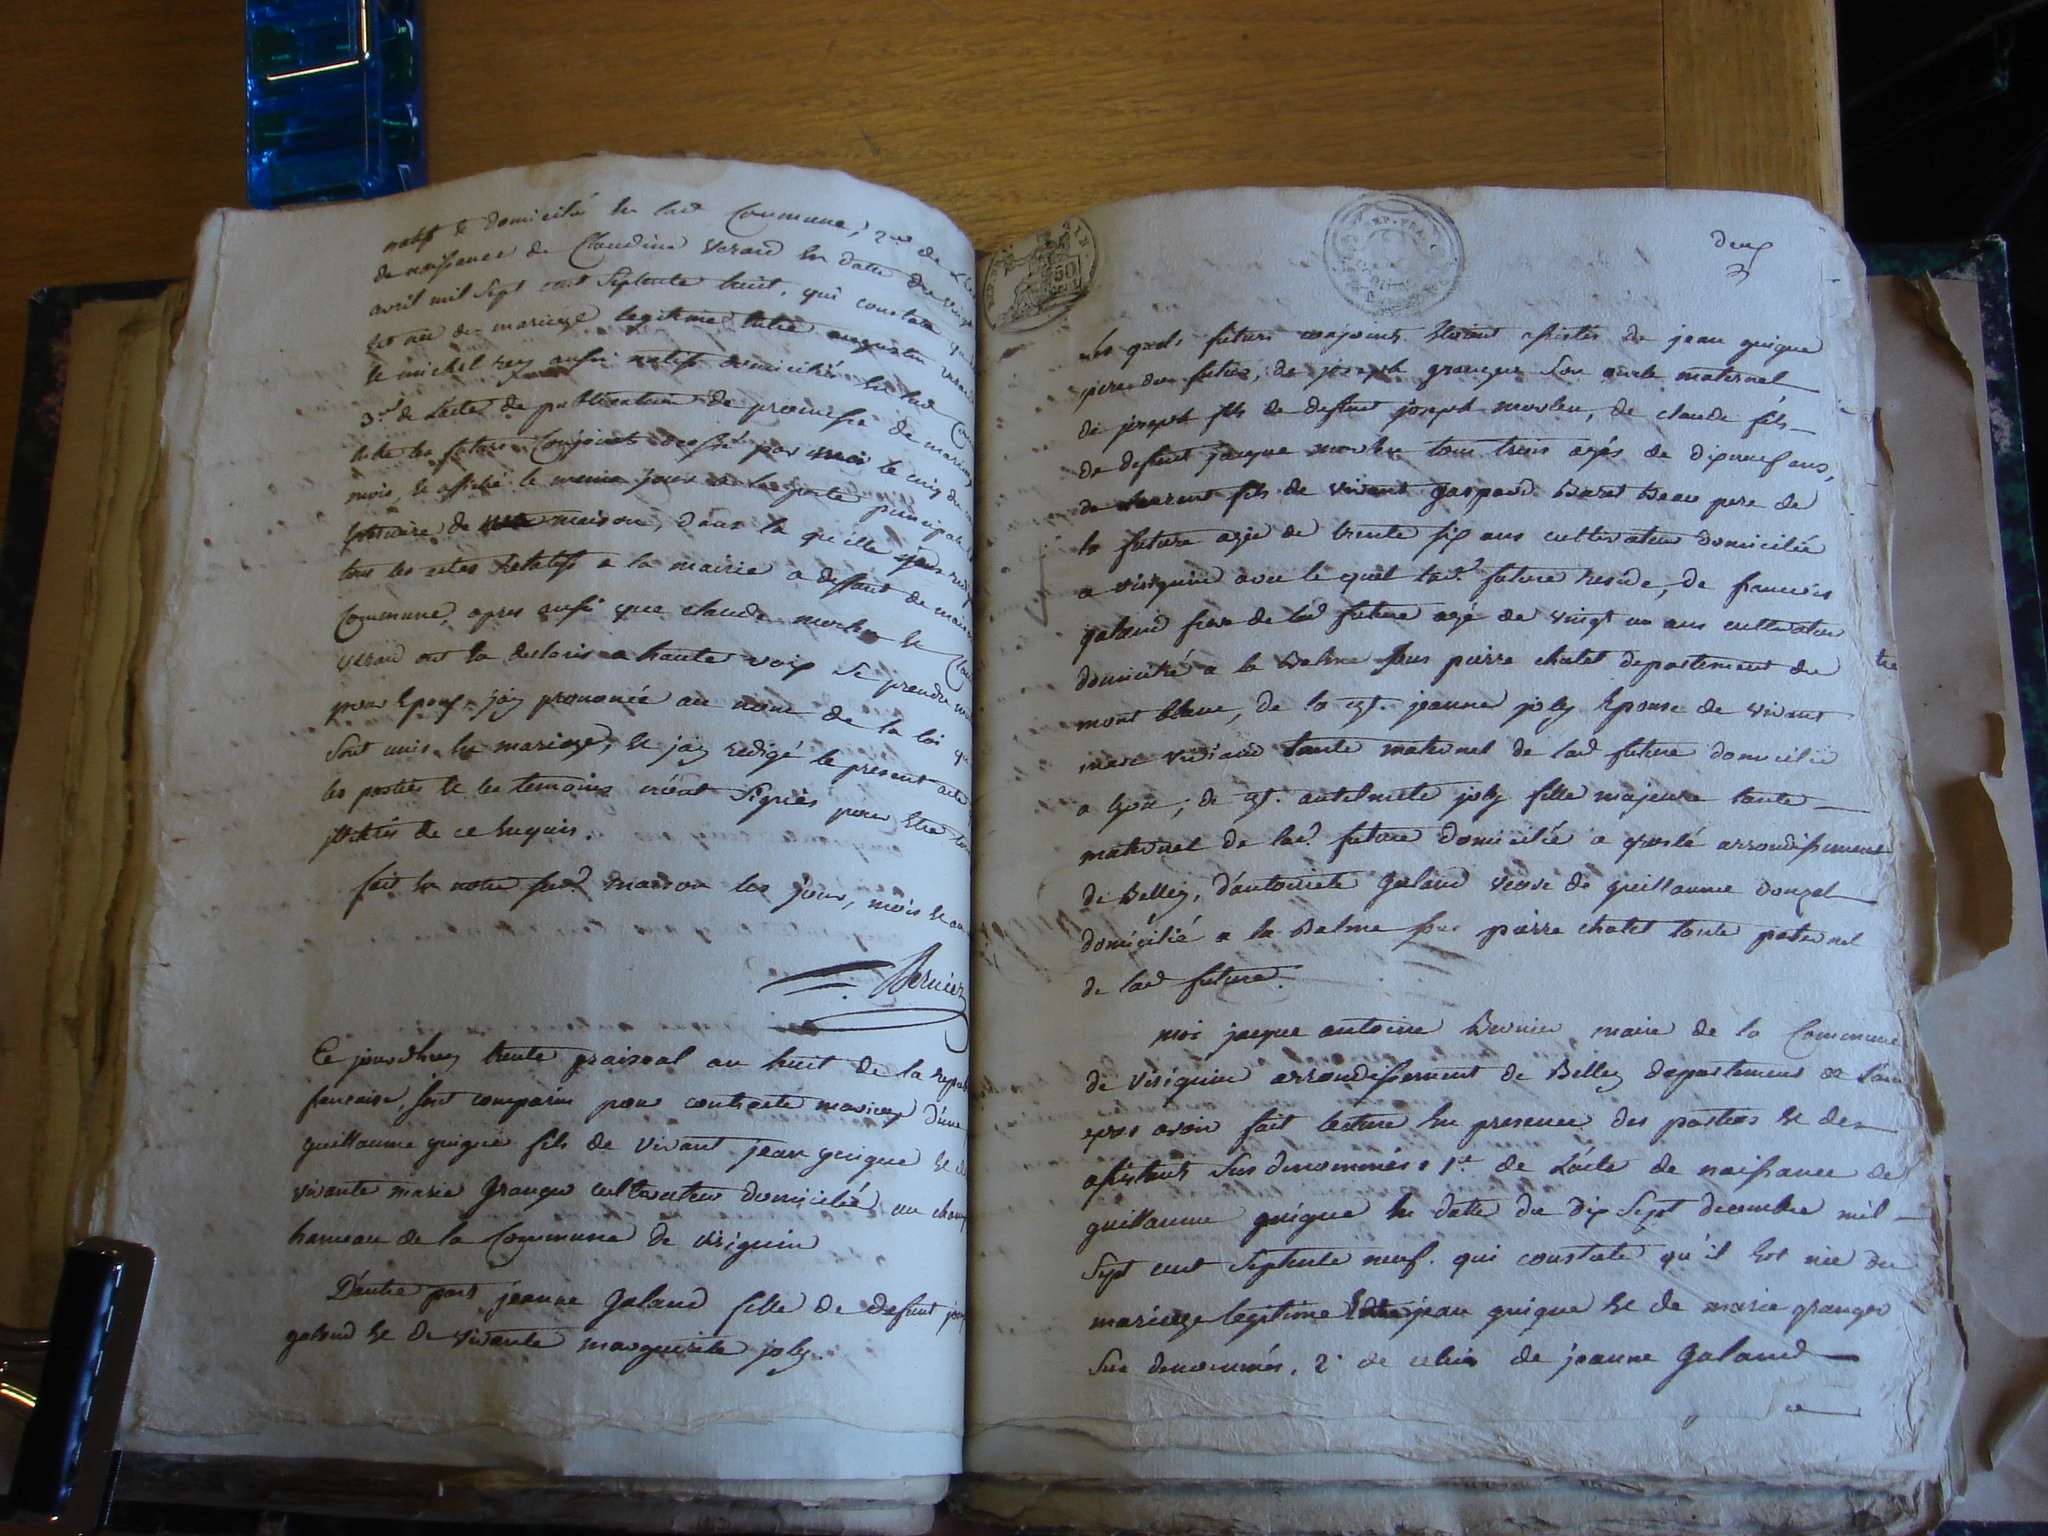 natif et domicilié en lad Commune, 2me de
de naissance de Claudine veraud en datte du vingt
avril mil sept cent Septente huit, qui constate
est née de mariage legitime entre augustin
et michel rey aussi natifs domiciliés en lad
3.e de l'acte de publication de promesse de mariage
entre les futurs Conjoints dressé par moi le cinq de
mois, et affiché le meme jour a la porte principale
de maison, dans la quelle
tous les actes Relatifs a la mairie a deffaut de maison
Commune, apres aussi que claude et
veraud ont eu declaré a haute voix Se prendre
pour Epoux, jay prononcé au nom de la loi
Sont unis en mariage, et jay redigé le present acte
les parties et les temoins n'ont Signés pour etre
de ce Enquis.
fait en notre sud. maison les jour, mois et an
Bernier
Ce jourdhuy trente prairial an huit de la repub
francaise, sont comparus pour contracte mariage d'une
guillaume guigue fils de vivant jean guigue et de
vivante marie Granger cultivateur domicilié au
hameau de la Commune de virignin
D'autre part jeanne Galand fille de defunt
galand et de vivante marguerite joly.
deux
50
Les quels futurs conjoints Etoint assistés de jean guigue
pere du futur, de joseph granger Son oncle maternel
de joseph fils de defunt joseph, de claude fils
de defunt jacque tous trois agés de dixneuf ans,
de fils de vivant gaspard beau pere de
la future agé de trente six ans cultivateur domicilié
a virignin avec le quel lad. future reside, de francois
galand frere de lad future agé de vingt un ans cultivateur
domicilié a la Balme sous pierre chatel departement du
mont blanc, de la cyt. jeanne joly Epouse de vivant
marc tante maternel de lad future domicilié
a lyon, de cyt. antelmete joly fille majeure tante
maternel de lad. future domicilié a arrondissement
de Belley, d'antoinete Galand veuve de guillaume
domicilié a la Balme sous pierre chatel tante paternel
de lad future.
moi jacque antoine Bernier, maire de la Commune
de virignin arrondissement de Belley departement de l'ain
apres avoir fait lecture En presence des parties et des
assistants Sus denommés 1re de L'acte de naissance de
guillaume guigue En date du dix Sept decembre mil
Sept cent Septente neuf. qui constate qu'il Est née du
mariage legitime Entre jean guigue et de marie granger
Sus denommés, 2e de celui de jeanne Galand